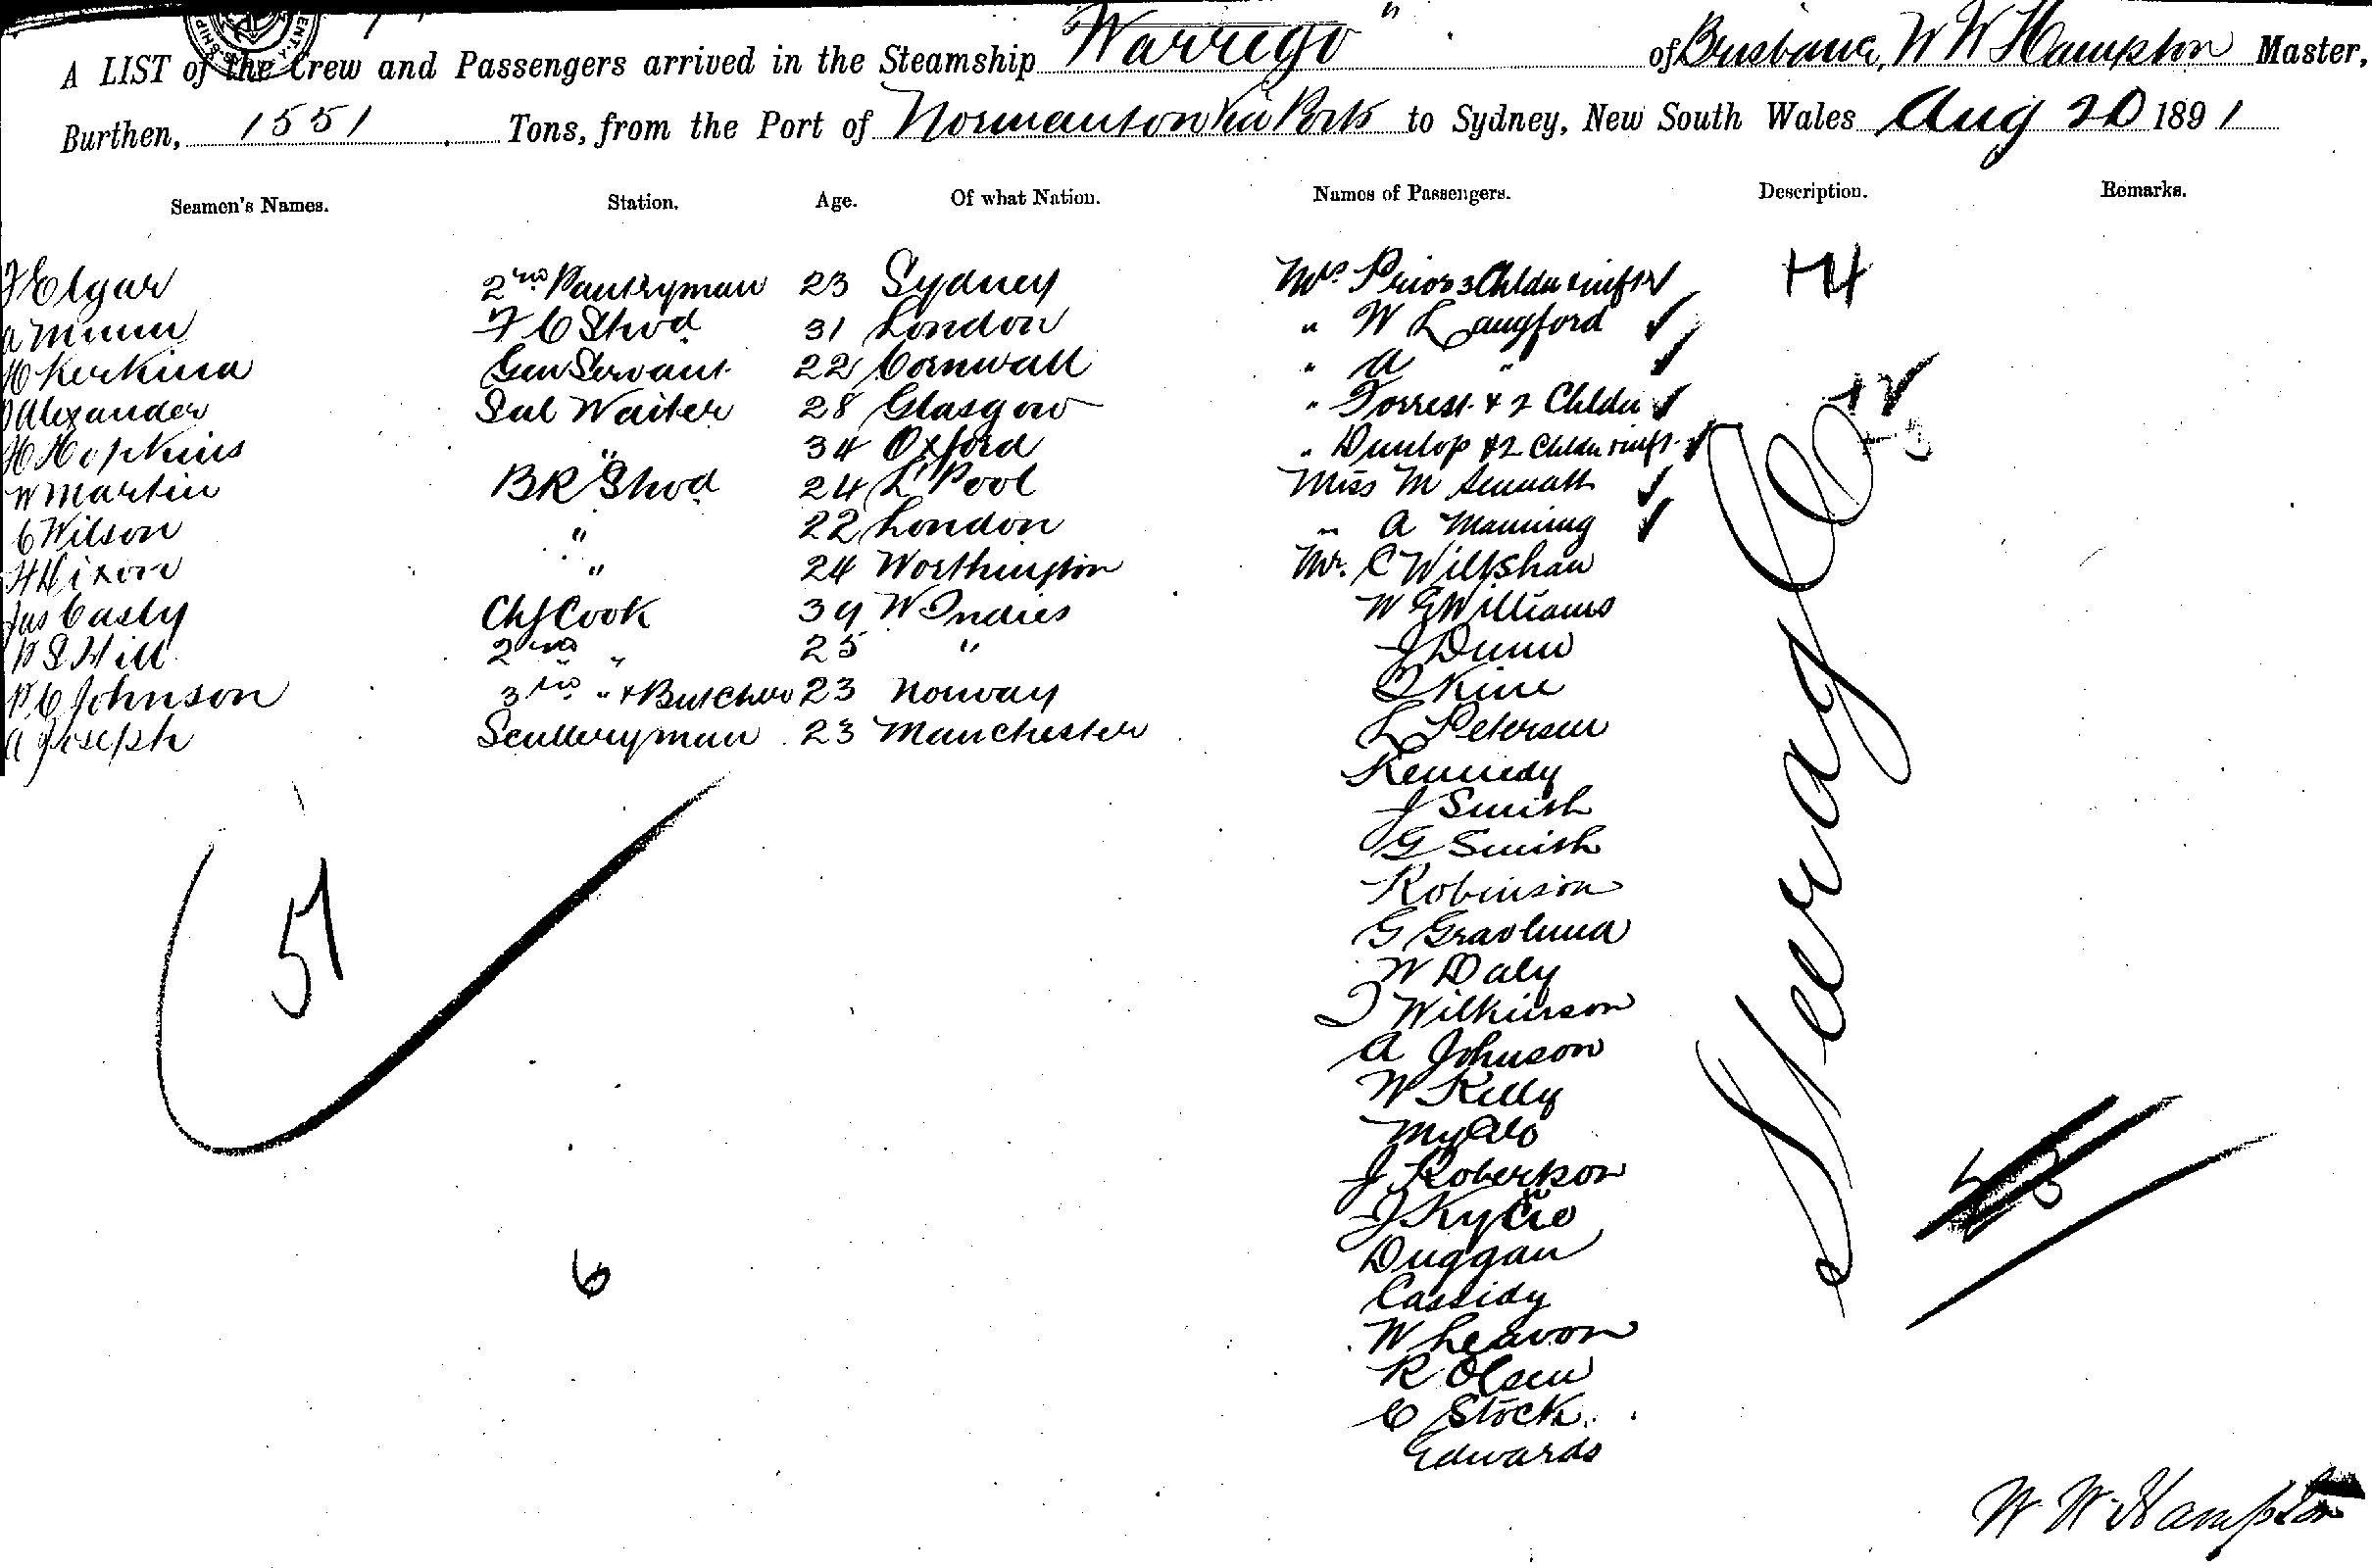 A LIST of the Crew and Passengers arrived in the Steamship "Warrego" of Brisbane, W W Hampton Master,
Burthen, 1551 Tons, from the Port of Normanton via Ports to Sydney, New South Wales Aug 20 1891
Seamen's Names. Station. Age. Of what Nation. Names of Passengers. Description. Remarks.
F Elgar 2nd Pantryman 23 Sydney Mrs Prior 3 Childn & inft
A Munn F C Stwd 31 London " W Langford
H Kerkina Gen Servant 22 Cornwall " A "
J Alexander Sal Waiter 28 Glasgow " Forrest & 2 Childn
H Hopkins " 34 Oxford " Dunlop & 2 Childn & inft
W Martin BR Stwd 24 L'Pool Miss M
C Wilson " 22 London " A Manning
H Dixon " 24 Worthington Mr. C Willshaw
Jas Casly Chf Cook 39 W Indies W G Williams
P S Hill 2nd " 25 " J Dunn
P. C Johnson 3rd " & Butcher 23 Norway Kine
A Joseph Sculleryman 23 Manchester L Petersen
Kennedy
J Smith
G Smith
Robinson
G Gravlund
W Daly
J Wilkinson
A Johnson
W Kelly
My Alo
J Robertson
J Kylie
Duggan
Cassidy
W Leavon
R Olsen
C Stock
Edwards
Steerage
51
6
W. W. Hampton